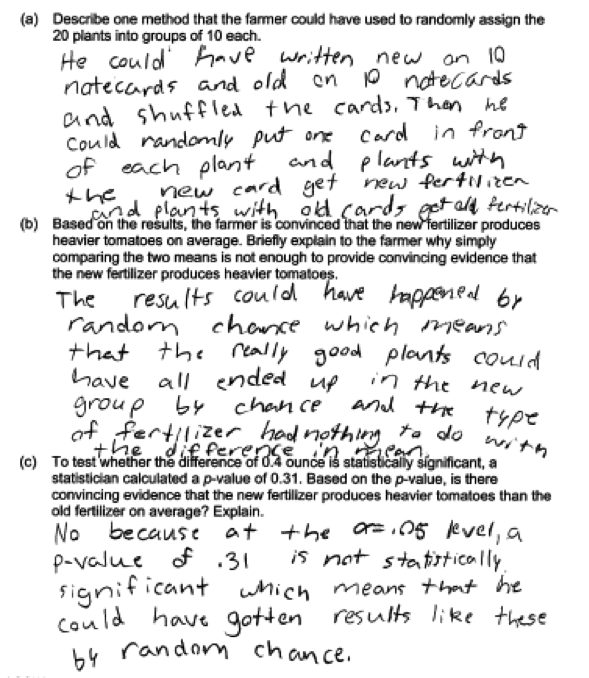 (a) Describe one method that the farmer could have used to randomly assign the
20 plants into groups of 10 each.
He could have written new on 10
notecards and old on 10 notecards
and shuffled the cards. Then he
could randomly put one card in front
of each plant and plants with
the new card get new fertilizer
and plants with old cards get old fertilizer
(b) Based on the results, the farmer is convinced that the new fertilizer produces
heavier tomatoes on average. Briefly explain to the farmer why simply
comparing the two means is not enough to provide convincing evidence that
the new fertilizer produces heavier tomatoes.
The results could have happened by
random chance which means
that the really good plants could
have all ended up in the new
group by chance and the type
of fertilizer had nothing to do with
the difference in mean.
(c) To test whether the difference of 0.4 ounce is statistically significant, a
statistician calculated a p-value of 0.31. Based on the p-value, is there
convincing evidence that the new fertilizer produces heavier tomatoes than the
old fertilizer on average? Explain.
No because at the α=.05 level, a
p-value of .31 is not statistically
significant which means that he
could have gotten results like these
by random chance.